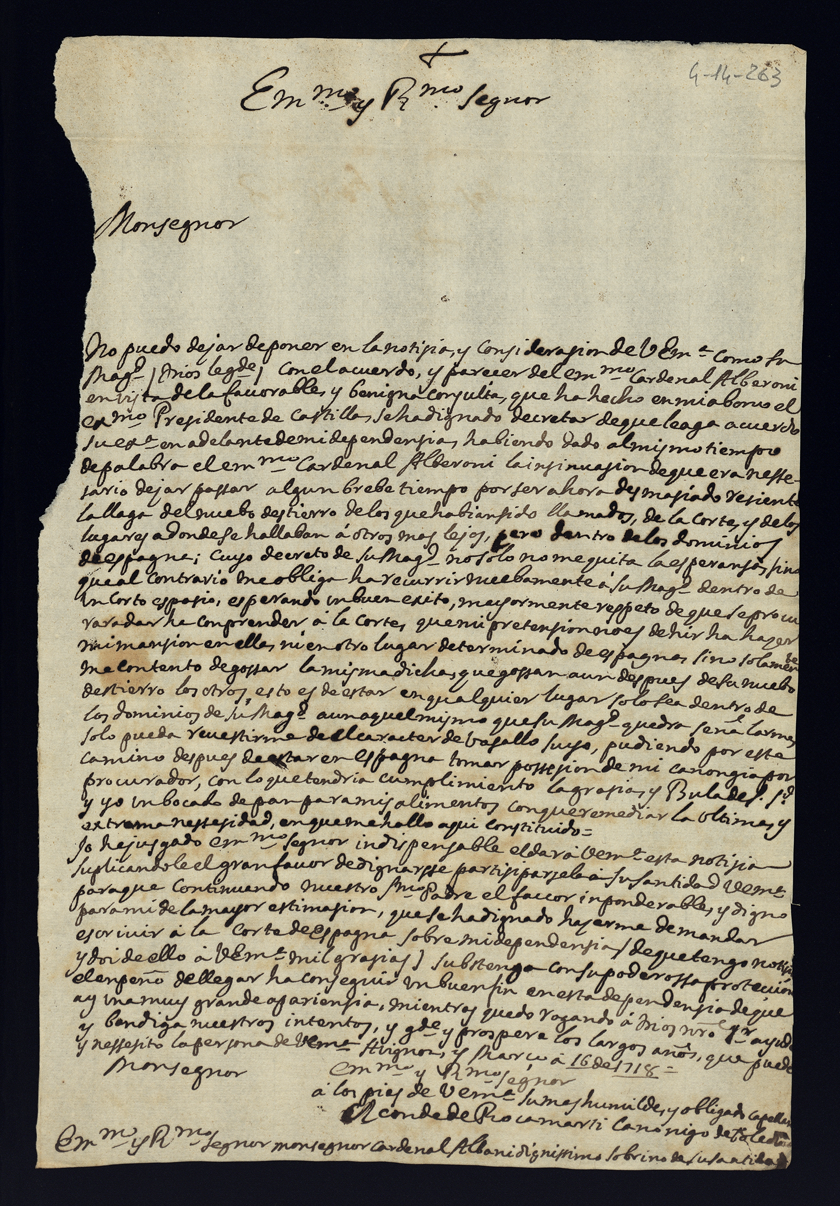 4-14-263
Em.mo y R.mo segnor
Monsegnor
No puedo dejar deponer en la notisia, y Consideracion de VEm.ª como su
Mag.d (Dios le g.de) con el acuerdo, y parecer del em.mo Cardenal Alberoni
en vista de la favorables, y benigna Consulta, que ha hecho en mi abono el
ex.mo Presidente de Castilla, se ha dignado decretar de que le aga acuerdo
su ex.ª en adelante de mi dependensia, habiendo dado al mismo tiempo
de palabra el em.mo Cardenal Alberoni la insinuasion de que era nesse-
sario dejar passar algun brebe tiempo por ser ahora desmasiado resiente
la llaga del nuebo destierro de los que habian sido llamados, de la Corte, y de los
lugares adonde se hallaban á otros mas lejos, pero dentro de los dominios
de espagna; Cuyo decreto de Su Mag.d no solo no me quita la esperansa, sino
que al contrario me obliga ha recurrir nuebamente á Su Mag.d dentro de
un corto espasio, esperando un buen exito, mayormente respeto de que se procu
rara dar ha conprender á la Corte, que mi pretension no es de hir ha hazer
mi mansion en ella, ni en otro lugar determinado de espagna, sino solamente
me contento de gossar la misma dicha, que gossan aun despues de su nuebo
destierro los otros, esto es de estar en qualquier lugar solo sea dentro de
los dominios de Su Mag.d aun aquel mismo que su Mag.d quedra señalarme
solo pueda revestirme del caracter de vasallo suyo, pudiendo por este
camino despues de estar en Espagna tomar possesion de mi canongia por
procurador, con lo que tendria cumplimiento la grasia, y Bula de S. S.d
y yo un bocado de pan para mis alimentos con que remediar la ultima, y
extrema nessesidad, en que me hallo aqui constituido =
Jo he jusgado em.mo segnor indispensable el dar á Vem.ª esta notisia
suplicandole el gran favor de dignarsse partisiparsela á su santidad Vem.ª
para que Continuando nuestro S.mo Padre el favor inponderable, y digno
para mi de la mayor estimasion, que se ha dignado hazerme de mandar
escrivir á la Corte de Espagna sobre mi dependensia (de que tengo notisia
y doi de ello á VEm.ª mil grasias) substenga con su poderossa proteccion
el enpeño de llegar ha conseguir un buen fin en esta dependensia de que
ay una muy grande apariensia, mientras quedo rogando á Dios nro S.r ayude
y bendiga nuestros intentos, y g.de y prospere los largos años, que puede
y nessesito la persona de Vem.ª Avignon, y Março á 16 de 1718 =
Monsegnor
em.mo y R.mo segnor
á los pies de Vem.ª su mas humilde, y obligado capellan
El conde de Rocamarti Canonigo de Toledo
Em.mo y R.mo segnor monsegnor cardenal Albani dignissimo sobrino de su santidad